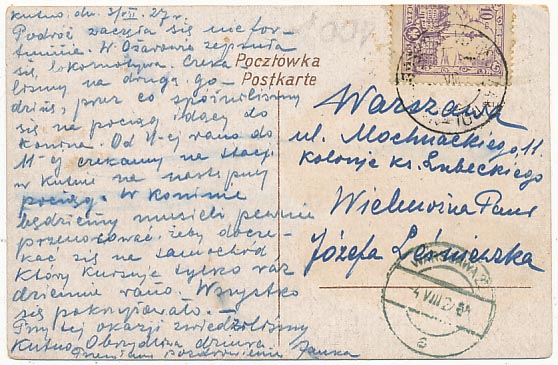 Kutno dn. 3/VIII 27 r.
Podróż zaczęła się niefor-
tunnie. W Ożarowie zepsuła
się lokomotywa. Czeka-
liśmy na drugą go-
dzinę, przez co spóźniliśmy
się na pociąg idący do
Konina. Od 4-ej rano do
11-ej czekamy na stacji
w Kutnie na następny
pociąg. W Koninie
będziemy musieli pewnie
przenocować, żeby docze-
kać się na samochód
który kursuje tylko raz
dziennie rano. Wszystko
się pokrzyżowało.—
Przy tej okazji zwiedziliśmy
Kutno. Obrzydliwa dziura
Przesyłam pozdrowienie Janka
Pocztówka
Postkarte
10
Warszawa
ul. Mochnackiego 11.
kolonja ks. Lubeckiego
Wielmożna Pani
Józefa Leśniewska
WARSZAWA
4 VIII 27
e